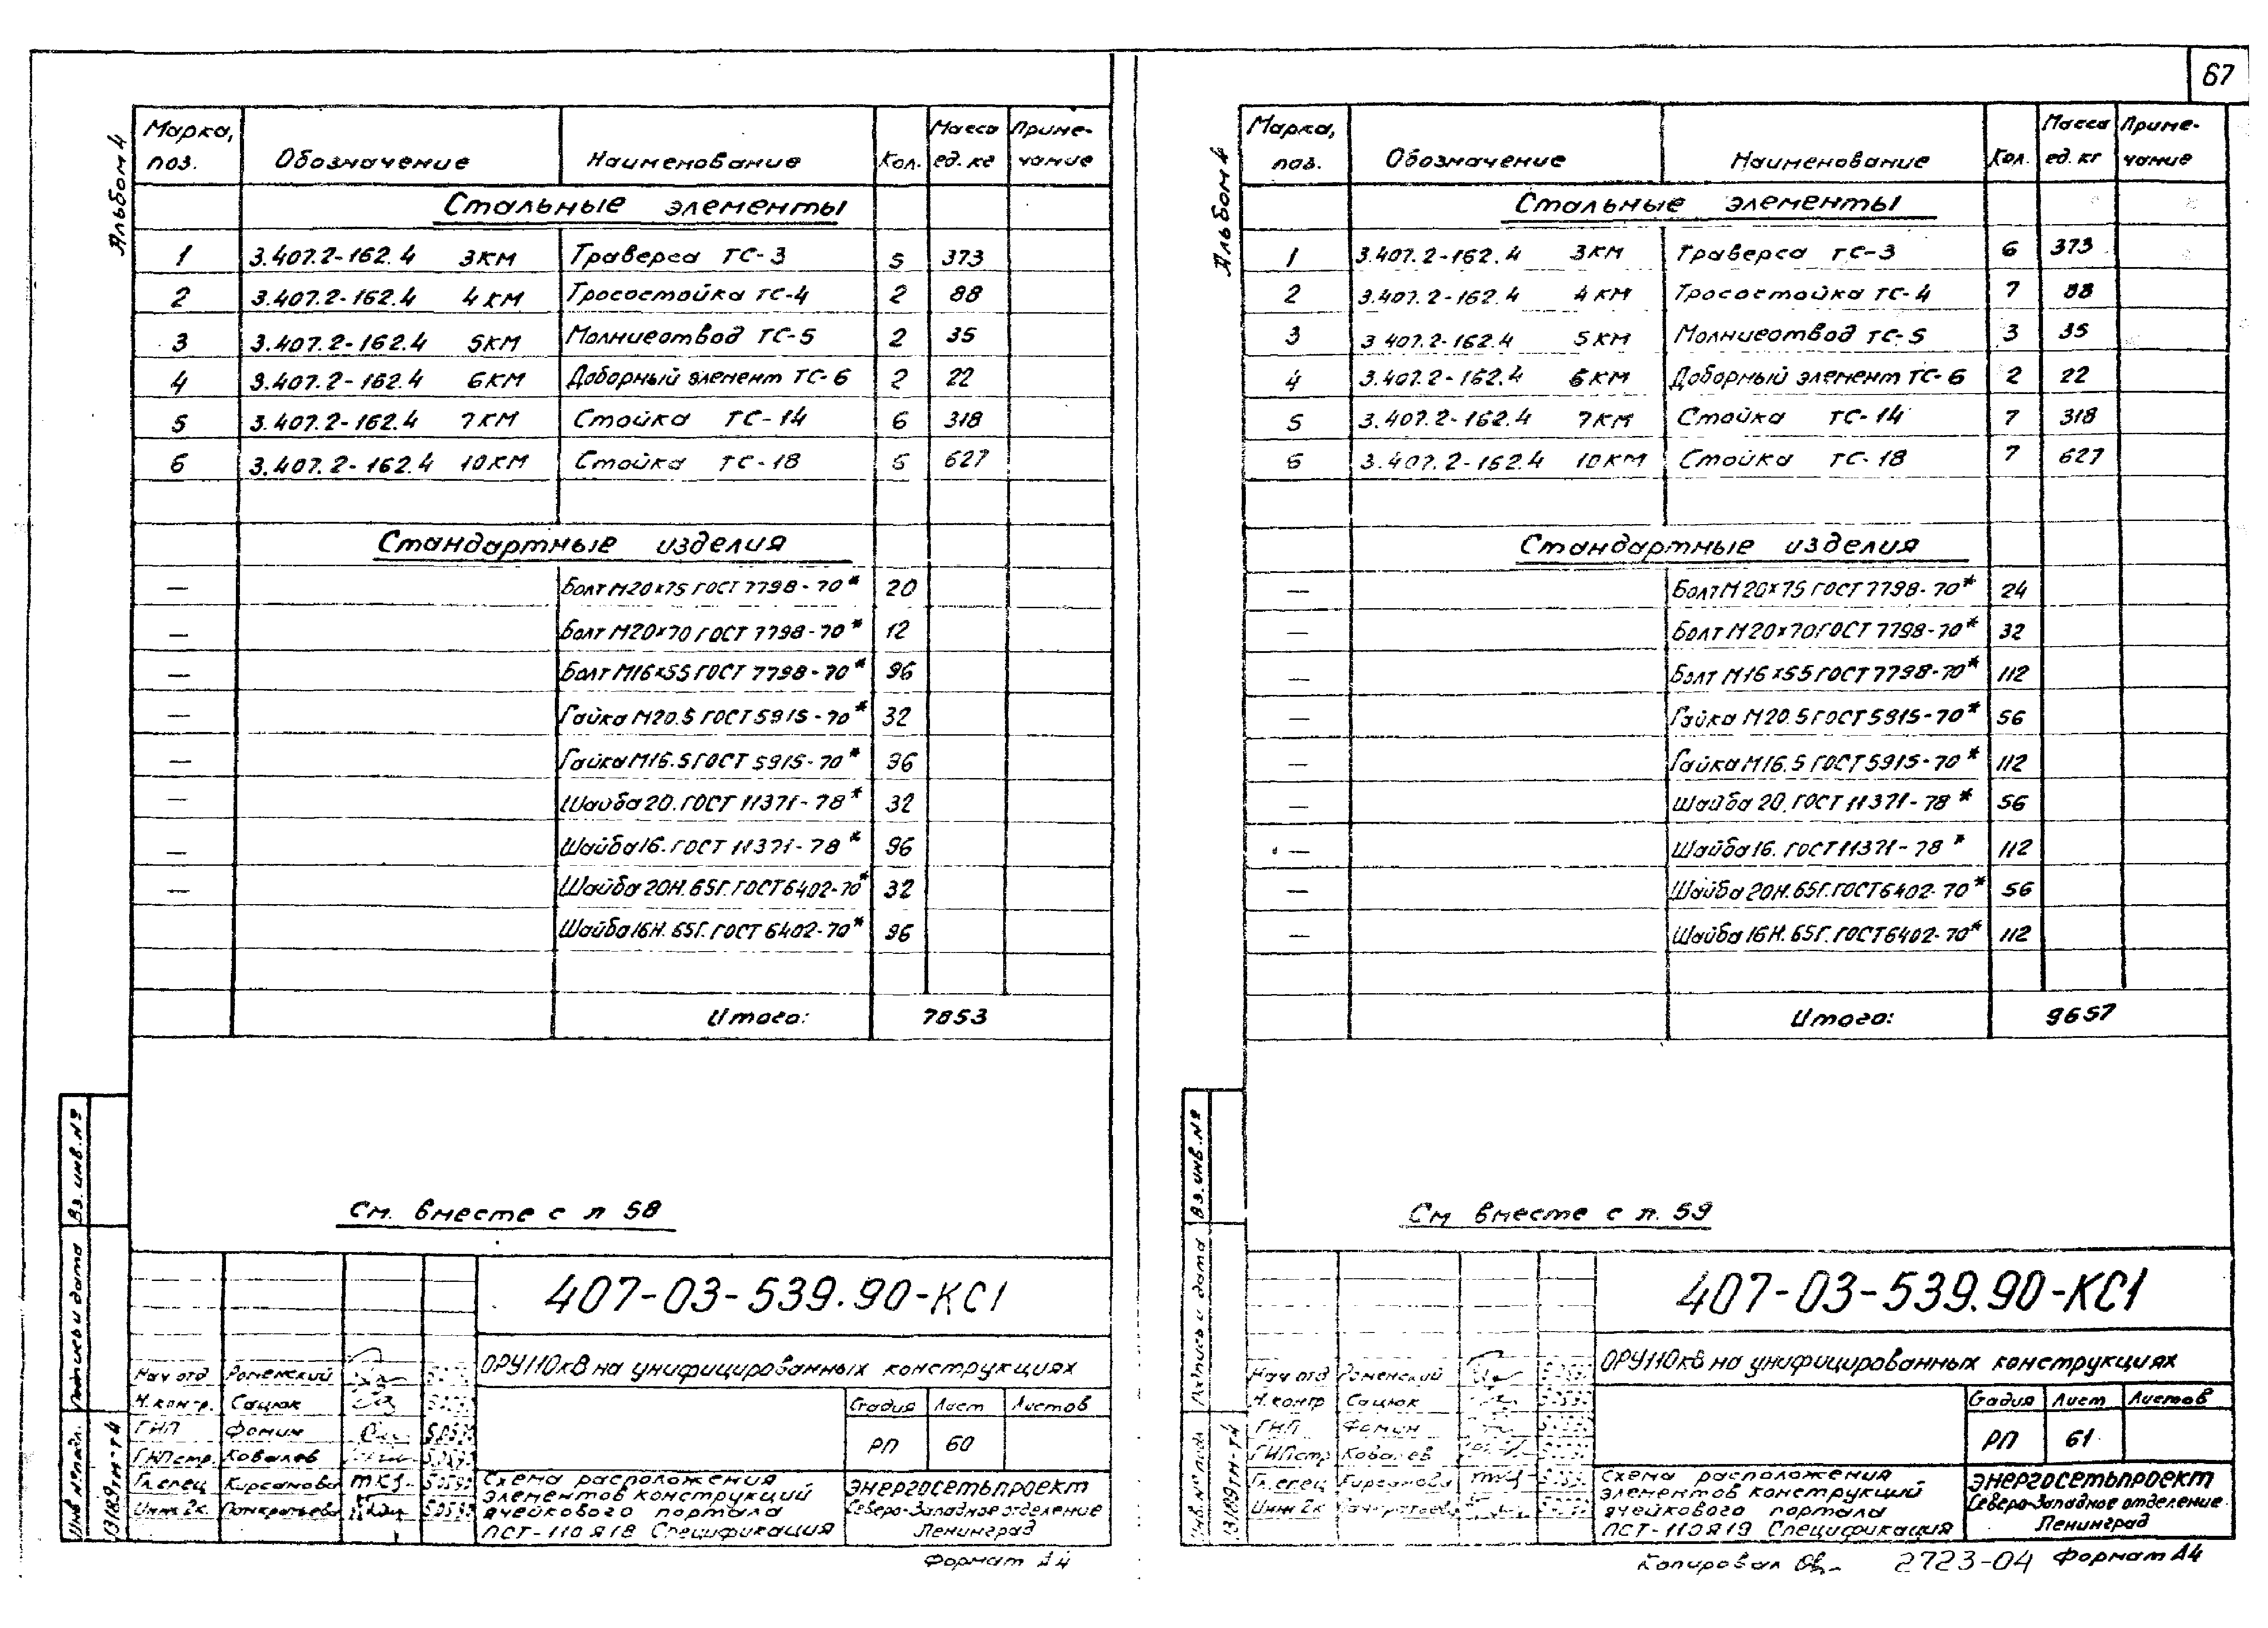 67
Альбом 4
Марка, поз. Обозначение Наименование Кол. Масса ед. кг Примечание
Стальные элементы
1 3.407.2-162.4 3КМ Траверса ТС-3 5 373
2 3.407.2-162.4 4КМ Тросостойка ТС-4 2 88
3 3.407.2-162.4 5КМ Молниеотвод ТС-5 2 35
4 3.407.2-162.4 6КМ Доборный элемент ТС-6 2 22
5 3.407.2-162.4 7КМ Стойка ТС-14 6 318
6 3.407.2-162.4 10КМ Стойка ТС-18 6 627
Стандартные изделия
— Болт М20×75 ГОСТ 7798-70* 20
— Болт М20×70 ГОСТ 7798-70* 12
— Болт М16×55 ГОСТ 7798-70* 96
— Гайка М20.5 ГОСТ 5915-70* 32
— Гайка М16.5 ГОСТ 5915-70* 96
— Шайба 20. ГОСТ 11371-78* 32
— Шайба 16. ГОСТ 11371-78* 96
— Шайба 20Н.65Г. ГОСТ 6402-70* 32
Шайба 16Н.65Г. ГОСТ 6402-70* 96
Итого: 7853
См. вместе с л 58
Вз. инв. №
Подпись и дата
Инв № подл.
13189тм-т4
407-03-539.90-КС1
ОРУ110кВ на унифицированных конструкциях
Нач отд Роменский
Н. контр. Сацюк
ГИП Фомин
ГИП стр. Ковалев
Гл. спец Кирсанова
Инж 2к. Панкратьева
Стадия Лист Листов
РП 60
Схема расположения
элементов конструкций
ячейкового портала
ПСТ-110Я18 Спецификация
Энергосетьпроект
Северо-Западное отделение
Ленинград
Формат А4
Альбом 4
Марка, поз. Обозначение Наименование Кол. Масса ед. кг Примечание
Стальные элементы
1 3.407.2-162.4 3КМ Траверса ТС-3 6 373
2 3.407.2-162.4 4КМ Тросостойка ТС-4 7 88
3 3.407.2-162.4 5КМ Молниеотвод ТС-5 3 35
4 3.407.2-162.4 6КМ Доборный элемент ТС-6 2 22
5 3.407.2-162.4 7КМ Стойка ТС-14 7 318
6 3.407.2-162.4 10КМ Стойка ТС-18 7 627
Стандартные изделия
— Болт М20×75 ГОСТ 7798-70* 24
— Болт М20×70 ГОСТ 7798-70* 32
— Болт М16×55 ГОСТ 7798-70* 112
— Гайка М20.5 ГОСТ 5915-70* 56
— Гайка М16.5 ГОСТ 5915-70* 112
— Шайба 20. ГОСТ 11371-78* 56
— Шайба 16. ГОСТ 11371-78* 112
— Шайба 20Н.65Г. ГОСТ 6402-70* 56
— Шайба 16Н.65Г. ГОСТ 6402-70* 112
Итого: 9657
См вместе с л. 59
Вз. инв. №
Подпись и дата
Инв. № подл
13189тм-т4
407-03-539.90-КС1
ОРУ110кВ на унифицированных конструкциях
Нач отд Роменский
Н. контр Сацюк
ГИП Фомин
ГИП стр Ковалев
Гл. спец Кирсанова
Инж 2к Панкратьева
Стадия Лист Листов
РП 61
Схема расположения
элементов конструкций
ячейкового портала
ПСТ-110Я19 Спецификация
Энергосетьпроект
Северо-Западное отделение
Ленинград
Копировал 2723-04 Формат А4